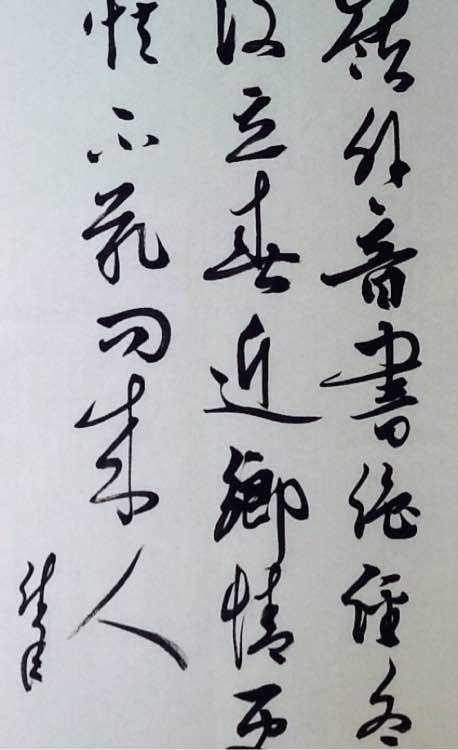 嶺外音書絶經冬
復立春近鄉情更
怯不敢問來人